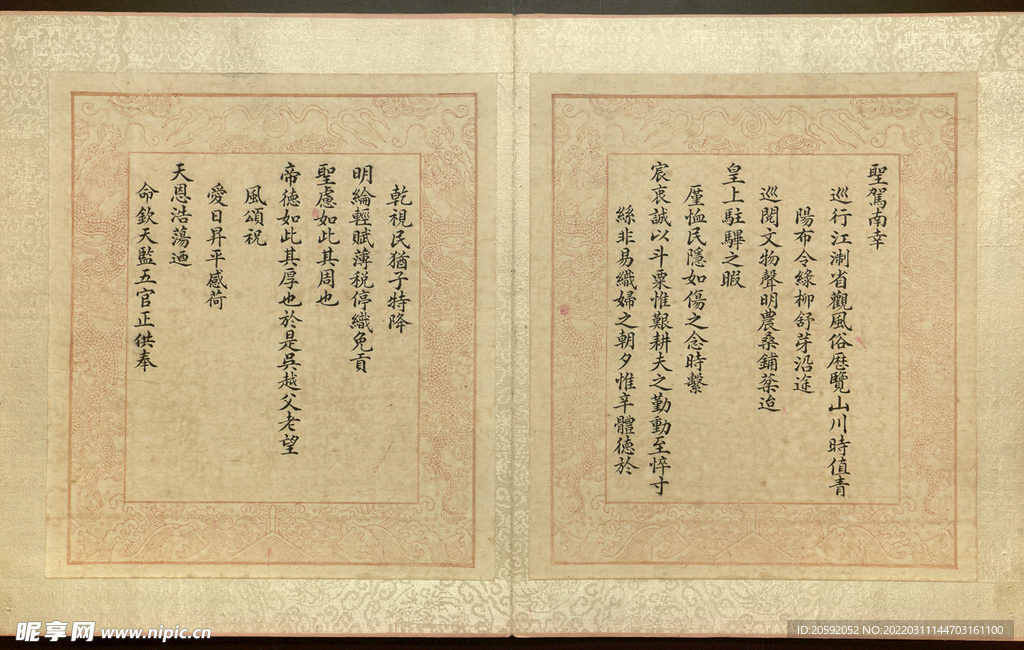 聖駕南幸
巡行江淛省觀風俗歷覽山川時值青
陽布令綠柳舒芽沿途
巡閱文物聲明農桑鋪菜迨
皇上駐驆之暇
厪恤民隱如傷之念時繫
宸衷誠以斗粟惟艱耕夫之勤動至悴寸
絲非易織婦之朝夕惟辛體德於
乾視民猶子特降
明綸輕賦薄稅停織免貢
聖慮如此其周也
帝德如此其厚也於是吳越父老望
風頌祝
愛日昇平感荷
天恩浩蕩迺
命欽天監五官正供奉
昵享网 www.nipic.cn
ID:20592052 NO:20220311144703161100